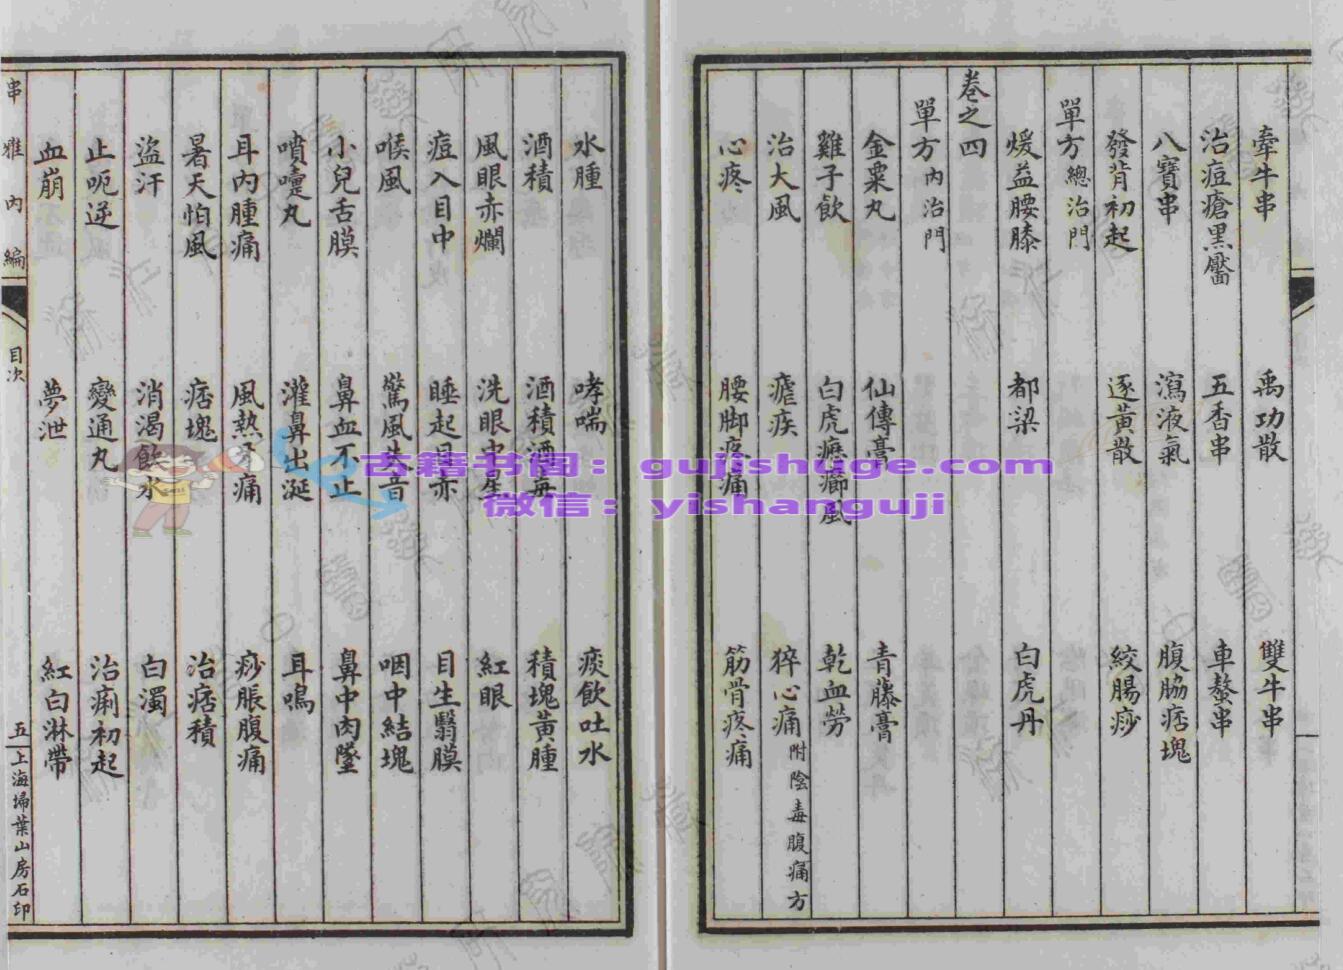 牽牛串 禹功散 雙牛串
治痘瘡黑靨 五香串 車螯串
八寶串 瀉液氣 腹脇痞塊
發背初起 逐黃散 絞腸痧
單方總治門
煖益腰膝 都梁 白虎丹
卷之四
單方內治門
金粟丸 仙傳膏 青藤膏
雞子飲 白虎癧癤風 乾血勞
治大風 瘧疾 猝心痛附陰毒腹痛方
心疼 腰脚疼痛 筋骨疼痛
水腫 哮喘 痰飲吐水
酒積 酒積酒毒 積塊黃腫
風眼赤爛 洗眼中星 紅眼
痘入目中 睡起目赤 目生翳膜
喉風 驚風失音 咽中結塊
小兒舌膜 鼻血不止 鼻中肉墜
噴嚏丸 灌鼻出涎 耳鳴
耳內腫痛 風熱牙痛 痧脹腹痛
暑天怕風 痞塊 治痞積
盜汗 消渴飲水 白濁
止呃逆 變通丸 治痢初起
血崩 夢泄 紅白淋帶
串雅內編 目次 五 上海埽葉山房石印
古籍书阁：gujishuge.com
微信：yishanguji